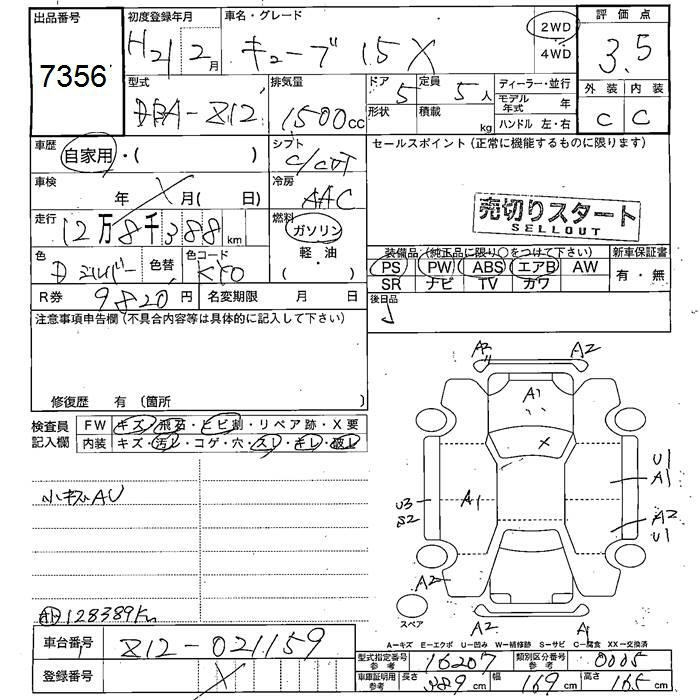 出品番号
7356
初度登録年月
H21 2月
車名・グレード
キューブ 15X
2WD
4WD
評価点
3.5
外装 内装
C C
型式
DBA-Z12
排気量
1500cc
ドア
5
形状
定員
5人
積載
kg
ディーラー・並行
モデル年式 年
ハンドル 左・右
車歴
自家用・( )
シフト
C/CVT
車検
年 X月( 日)
冷房
AAC
走行
12万8千388km
燃料
ガソリン
軽・油
( )
色
Dシルバー
色替
色コード
R券
9820円
名変期限 月 日
セールスポイント(正常に機能するものに限ります)
売切りスタート
SELLOUT
装備品(純正品に限り○をつけて下さい)
PS PW ABS エアB AW
SR ナビ TV カワ
新車保証書
有・無
後日品
注意事項申告欄(不具合内容等は具体的に記入して下さい)
修復歴 有(箇所 )
検査員記入欄
FW キズ・飛石・ヒビ割・リペア跡・X要
内装 キズ・汚レ・コゲ・穴・スレ・キレ・破レ
小キズAU
128389km
A2 A2
A1
X
U1
A1
U3
S2
A1
A2
U1
A2
スペア
A2 A1
A-キズ E-エクボ U-凹み W-補修跡 S-サビ C-腐食 XX-交換済
車台番号
Z12-021159
登録番号
型式指定番号 参考
16207
類別区分番号 参考
0005
車庫証明用 参考
長さ 389cm
幅 169cm
高さ 165cm